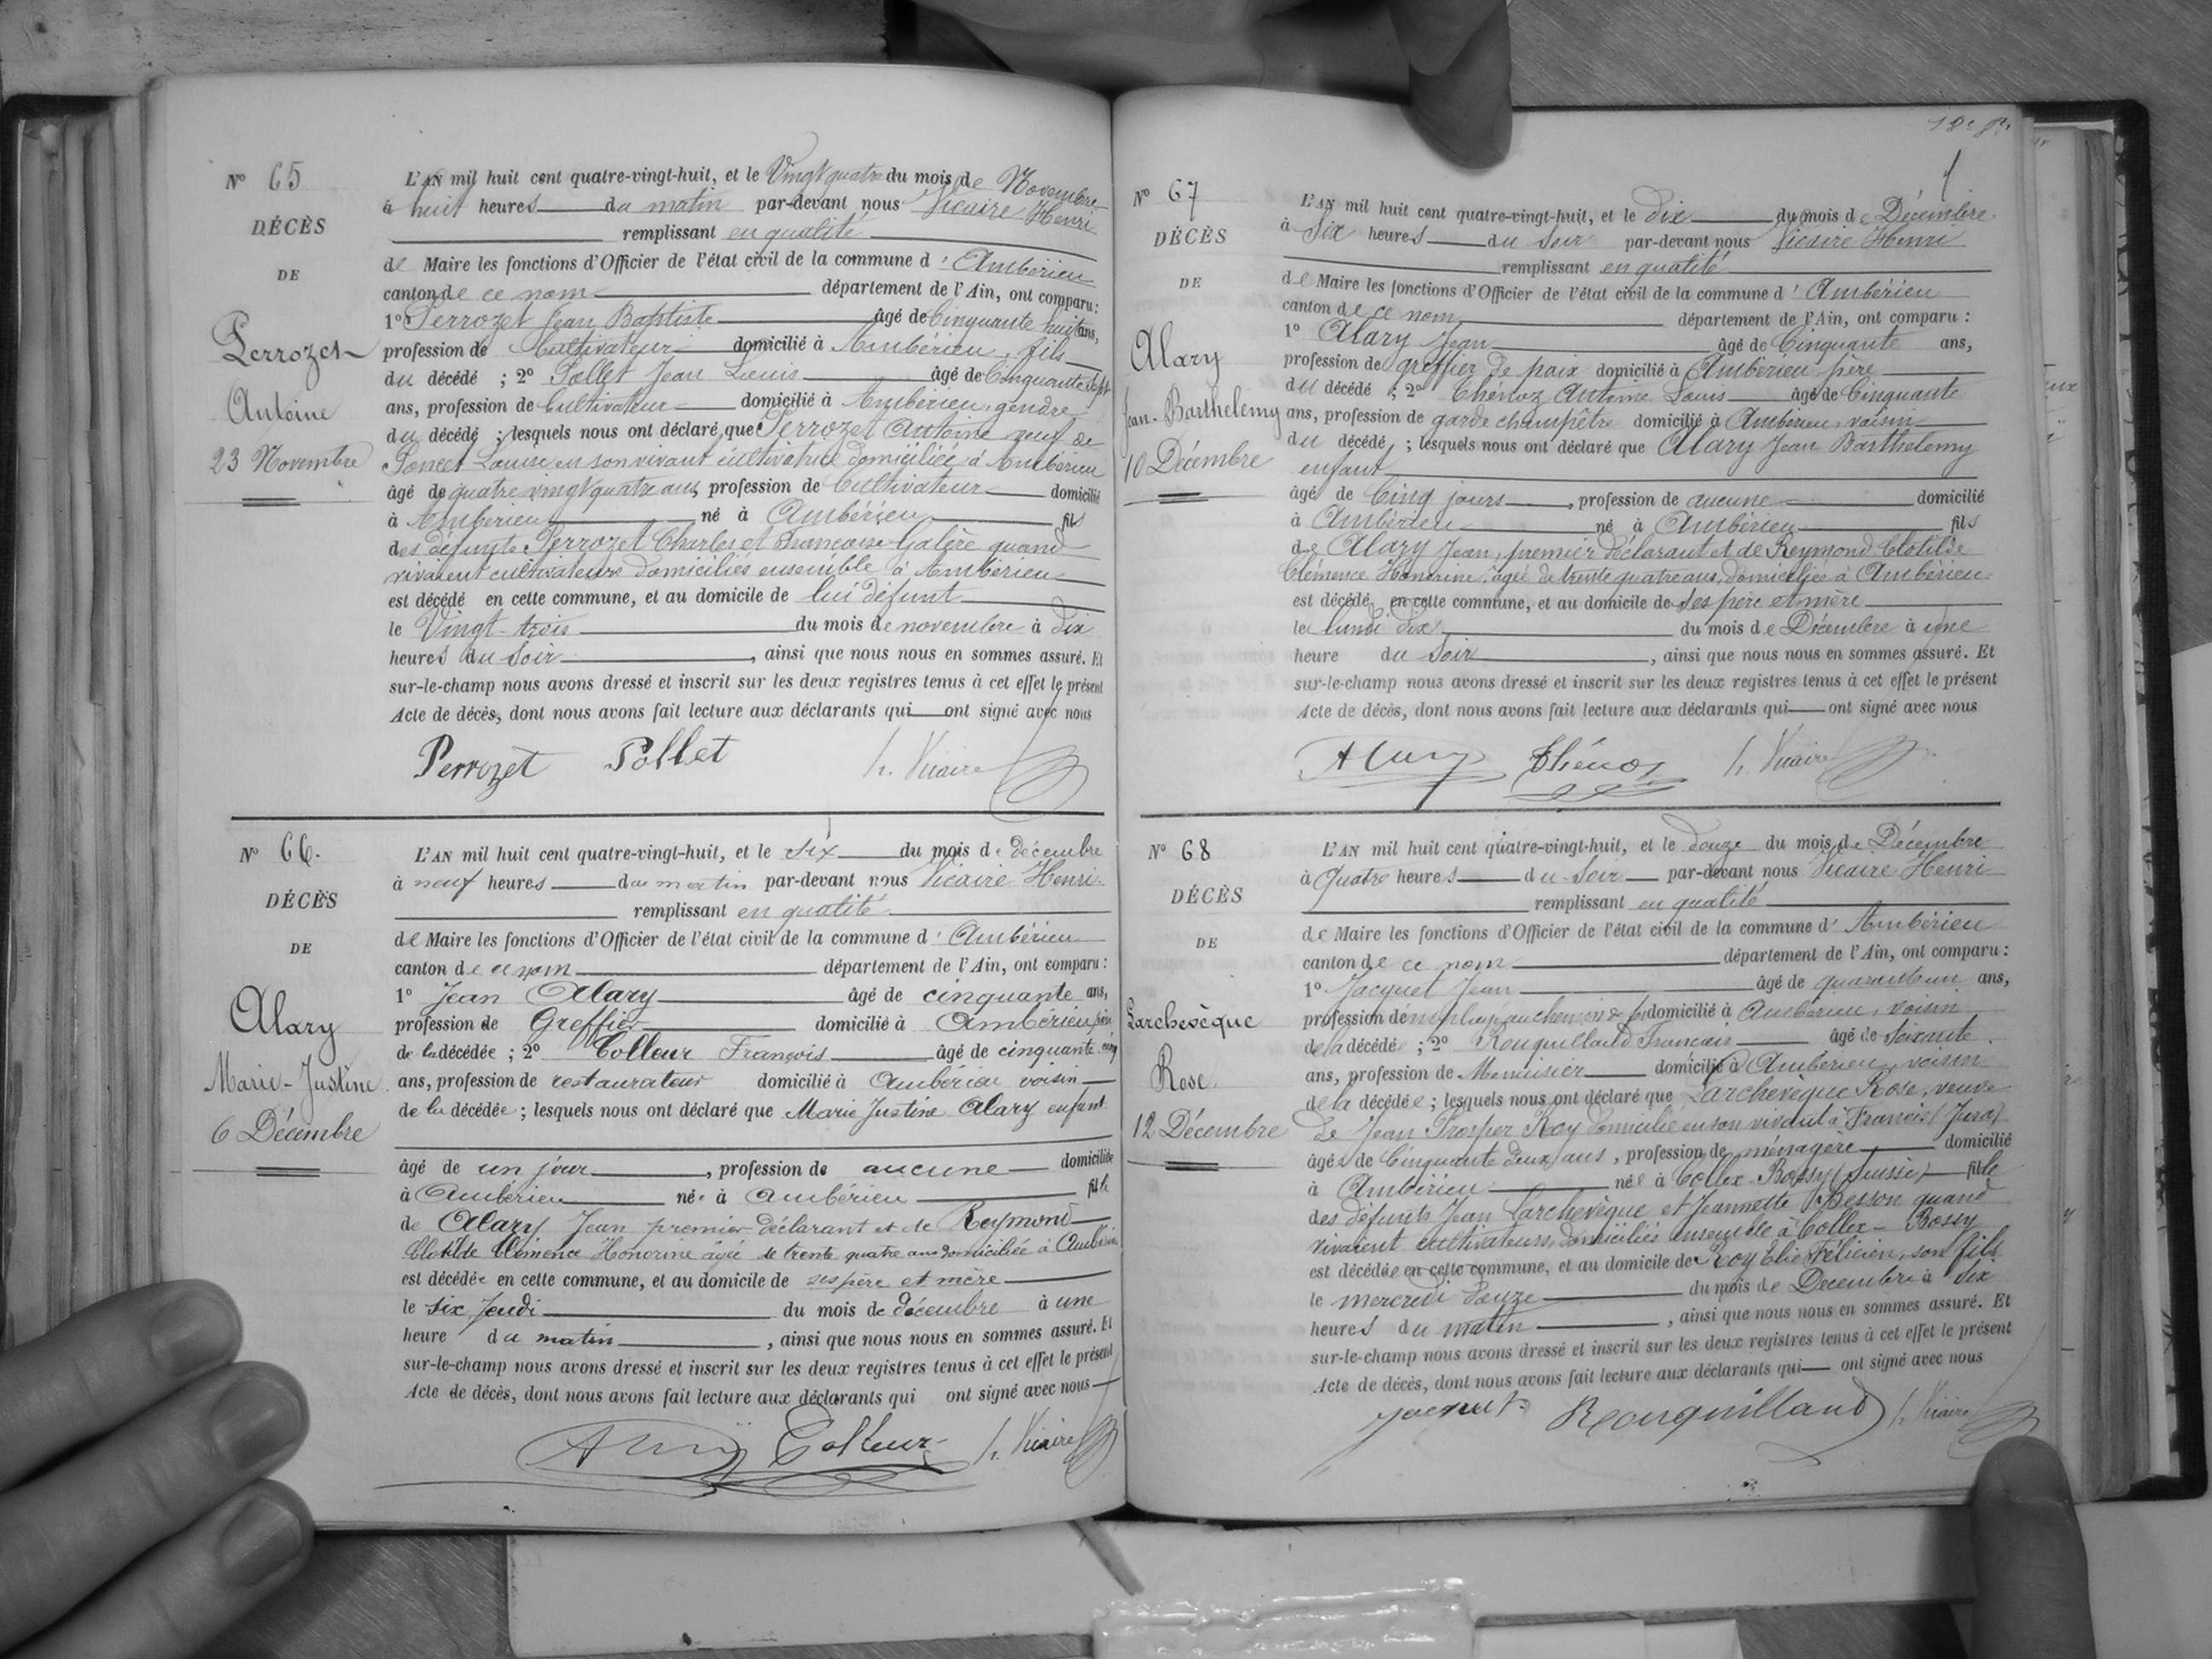 Nº 65
DÉCÈS
DE
Perrozet
Antoine
23 Novembre
L'AN mil huit cent quatre-vingt-huit, et le Vingt quatre du mois de Novembre
à huit heures du matin par-devant nous Vicaire Henri
remplissant en qualité
de Maire les fonctions d'Officier de l'état civil de la commune d'Ambérieu
canton de ce nom département de l'Ain, ont comparu :
1º Perrozet Jean Baptiste âgé de Cinquante huit ans,
profession de Cultivateur domicilié à Ambérieu, fils
du décédé ; 2º Pollet Jean Louis âgé de Cinquante sept
ans, profession de Cultivateur domicilié à Ambérieu, gendre
du décédé ; lesquels nous ont déclaré que Perrozet Antoine veuf de
Poncet Louise en son vivant cultivatrice domiciliée à Ambérieu
âgé de quatre vingt quatre ans, profession de Cultivateur domicilié
à Ambérieu né à Ambérieu fils
des défunts Perrozet Charles et Françoise Galère quand
vivaient cultivateurs domiciliés ensemble à Ambérieu
est décédé en cette commune, et au domicile de lui défunt
le Vingt-trois du mois de novembre à dix
heures du Soir, ainsi que nous nous en sommes assuré. Et
sur-le-champ nous avons dressé et inscrit sur les deux registres tenus à cet effet le présent
Acte de décès, dont nous avons fait lecture aux déclarants qui ont signé avec nous
Perrozet Pollet h. Vicaire
Nº 66.
DÉCÈS
DE
Alary
Marie-Justine
6 Décembre
L'AN mil huit cent quatre-vingt-huit, et le six du mois de décembre
à neuf heures du matin par-devant nous Vicaire Henri
remplissant en qualité
de Maire les fonctions d'Officier de l'état civil de la commune d'Ambérieu
canton de ce nom département de l'Ain, ont comparu :
1º Jean Alary âgé de cinquante ans,
profession de Greffier domicilié à Ambérieu père
de la décédée ; 2º Colleur François âgé de cinquante cinq
ans, profession de restaurateur domicilié à Ambérieu voisin
de la décédée ; lesquels nous ont déclaré que Marie Justine Alary enfant
âgé de un jour, profession de aucune domiciliée
à Ambérieu née à Ambérieu fille
de Alary Jean premier déclarant et de Reymond
Clotilde Clémence Honorine âgée de trente quatre ans domiciliée à Ambérieu
est décédée en cette commune, et au domicile de ses père et mère
le six Jeudi du mois de décembre à une
heure du matin, ainsi que nous nous en sommes assuré. Et
sur-le-champ nous avons dressé et inscrit sur les deux registres tenus à cet effet le présent
Acte de décès, dont nous avons fait lecture aux déclarants qui ont signé avec nous
Alary Colleur h. Vicaire
Nº 67
DÉCÈS
DE
Alary
Jean-Barthelemy
10 Décembre
L'AN mil huit cent quatre-vingt-huit, et le dix du mois de Décembre
à Six heures du Soir par-devant nous Vicaire Henri
remplissant en qualité
de Maire les fonctions d'Officier de l'état civil de la commune d'Ambérieu
canton de ce nom département de l'Ain, ont comparu :
1º Alary Jean âgé de Cinquante ans,
profession de greffier de paix domicilié à Ambérieu père
du décédé ; 2º Thénoz Antoine Louis âgé de Cinquante
ans, profession de garde champêtre domicilié à Ambérieu, voisin
du décédé ; lesquels nous ont déclaré que Alary Jean Barthelemy
enfant
âgé de Cinq jours, profession de aucune domicilié
à Ambérieu né à Ambérieu fils
de Alary Jean, premier déclarant et de Reymond Clotilde
Clémence Honorine, âgée de trente quatre ans, domiciliée à Ambérieu
est décédé en cette commune, et au domicile de ses père et mère
le lundi dix du mois de Décembre à une
heure du Soir, ainsi que nous nous en sommes assuré. Et
sur-le-champ nous avons dressé et inscrit sur les deux registres tenus à cet effet le présent
Acte de décès, dont nous avons fait lecture aux déclarants qui ont signé avec nous
Alary Thénoz h. Vicaire
Nº 68
DÉCÈS
DE
Larchevèque
Rose.
12 Décembre
L'AN mil huit cent quatre-vingt-huit, et le douze du mois de Décembre
à Quatre heures du Soir par-devant nous Vicaire Henri
remplissant en qualité
de Maire les fonctions d'Officier de l'état civil de la commune d'Ambérieu
canton de ce nom département de l'Ain, ont comparu :
1º Jacquet Jean âgé de quarante un ans,
profession de employé au chemin de fer domicilié à Ambérieu, voisin
de la décédée ; 2º Rouquilland Francois âgé de Soixante
ans, profession de Menuisier domicilié à Ambérieu, voisin
de la décédée ; lesquels nous ont déclaré que Larchevèque Rose, veuve
de Jean Prosper Roy domicilié en son vivant à (Jura)
âgée de Cinquante deux ans, profession de ménagère domicilié
à Ambérieu née à Collex-Bossy (Suisse) fille
des défunts Jean Larchevèque et Jeannette Besson quand
vivaient cultivateurs, domiciliés ensemble à Collex-Bossy
est décédée en cette commune, et au domicile de Roy Elie Félicien, son fils
le mercredi douze du mois de Decembre à Six
heures du matin, ainsi que nous nous en sommes assuré. Et
sur-le-champ nous avons dressé et inscrit sur les deux registres tenus à cet effet le présent
Acte de décès, dont nous avons fait lecture aux déclarants qui ont signé avec nous
Jacquet Rouquilland h. Vicaire